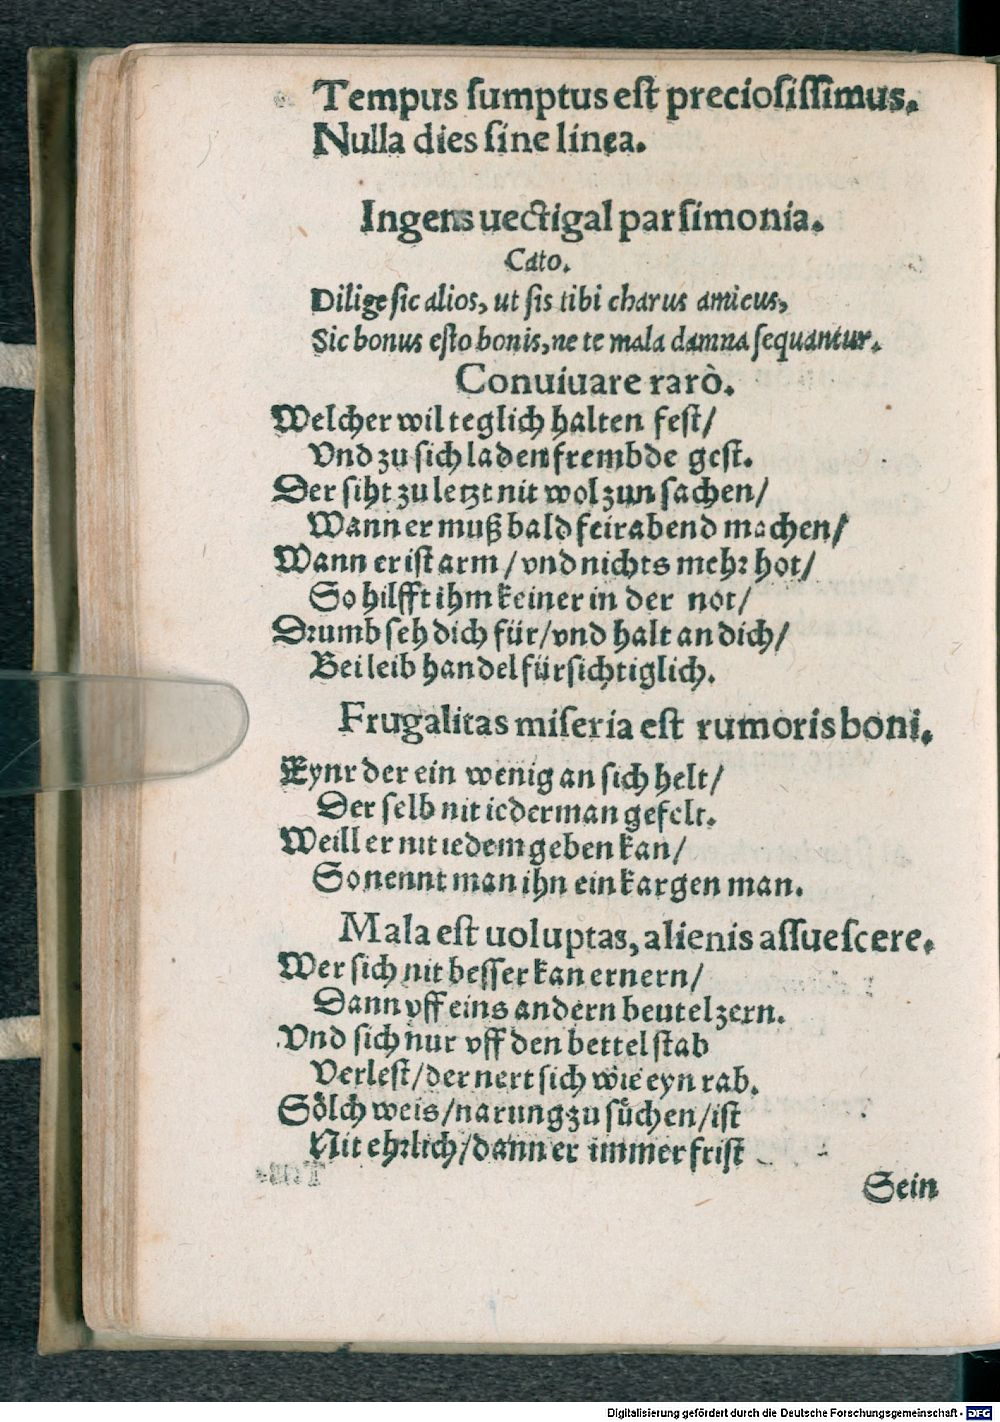 Tempus sumptus est preciosissimus.
Nulla dies sine linea.
Ingens uectigal parsimonia.
Cato.
Dilige sic alios, ut sis tibi charus amicus,
Sic bonus esto bonis, ne te mala damna sequantur.
Conuiuare rarò.
Welcher wil teglich halten fest/
Vnd zu sich laden frembde gest.
Der siht zu letzt nit wol zun sachen/
Wann er muß bald feirabend machen/
Wann er ist arm / vnd nichts mehr hot/
So hilfft ihm keiner in der not/
Drumb seh dich für/ vnd halt an dich/
Bei leib handel fürsichtiglich.
Frugalitas miseria est rumoris boni.
Eynr der ein wenig an sich helt/
Der selb nit iederman gefelt.
Weill er nit iedem geben kan/
So nennt man ihn ein kargen man.
Mala est uoluptas, alienis assuescere.
Wer sich nit besser kan ernern/
Dann vff eins andern beutel zern.
Vnd sich nur vff den bettel stab
Verlest/ der nert sich wie eyn rab.
Sölch weis/ narung zu sůchen/ ist
Nit ehrlich/ dann er immer frist
Sein
Digitalisierung gefördert durch die Deutsche Forschungsgemeinschaft - DFG